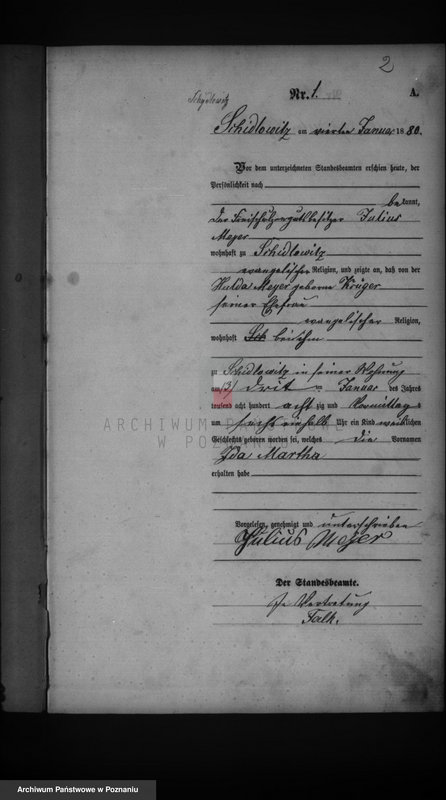 2
Schydlowitz
Nr. 1.
A.
Schidlowitz am vierten Januar 1880.
Vor dem unterzeichneten Standesbeamten erschien heute, der
Persönlichkeit nach
bekannt,
der Freischulzengutsbesitzer Julius
Meyer
wohnhaft zu Schidlowitz
evangelischer Religion, und zeigte an, daß von der
Hulda Meyer geborne Krüger
seiner Ehefrau
evangelischer Religion,
wohnhaft bei ihm
zu Schidlowitz in seiner Wohnung
am (3) drit = Januar des Jahres
tausend acht hundert achtzig und Vormittags
um sechs einhalb Uhr ein Kind weiblichen
Geschlechts geboren worden sei, welches die Vornamen
Ida Martha
erhalten habe
ARCHIWUM PAŃSTWOWE
W POZNANIU
Vorgelesen, genehmigt und unterschrieben
Julius Meyer
Der Standesbeamte.
In Vertretung
Falk.
Archiwum Państwowe w Poznaniu